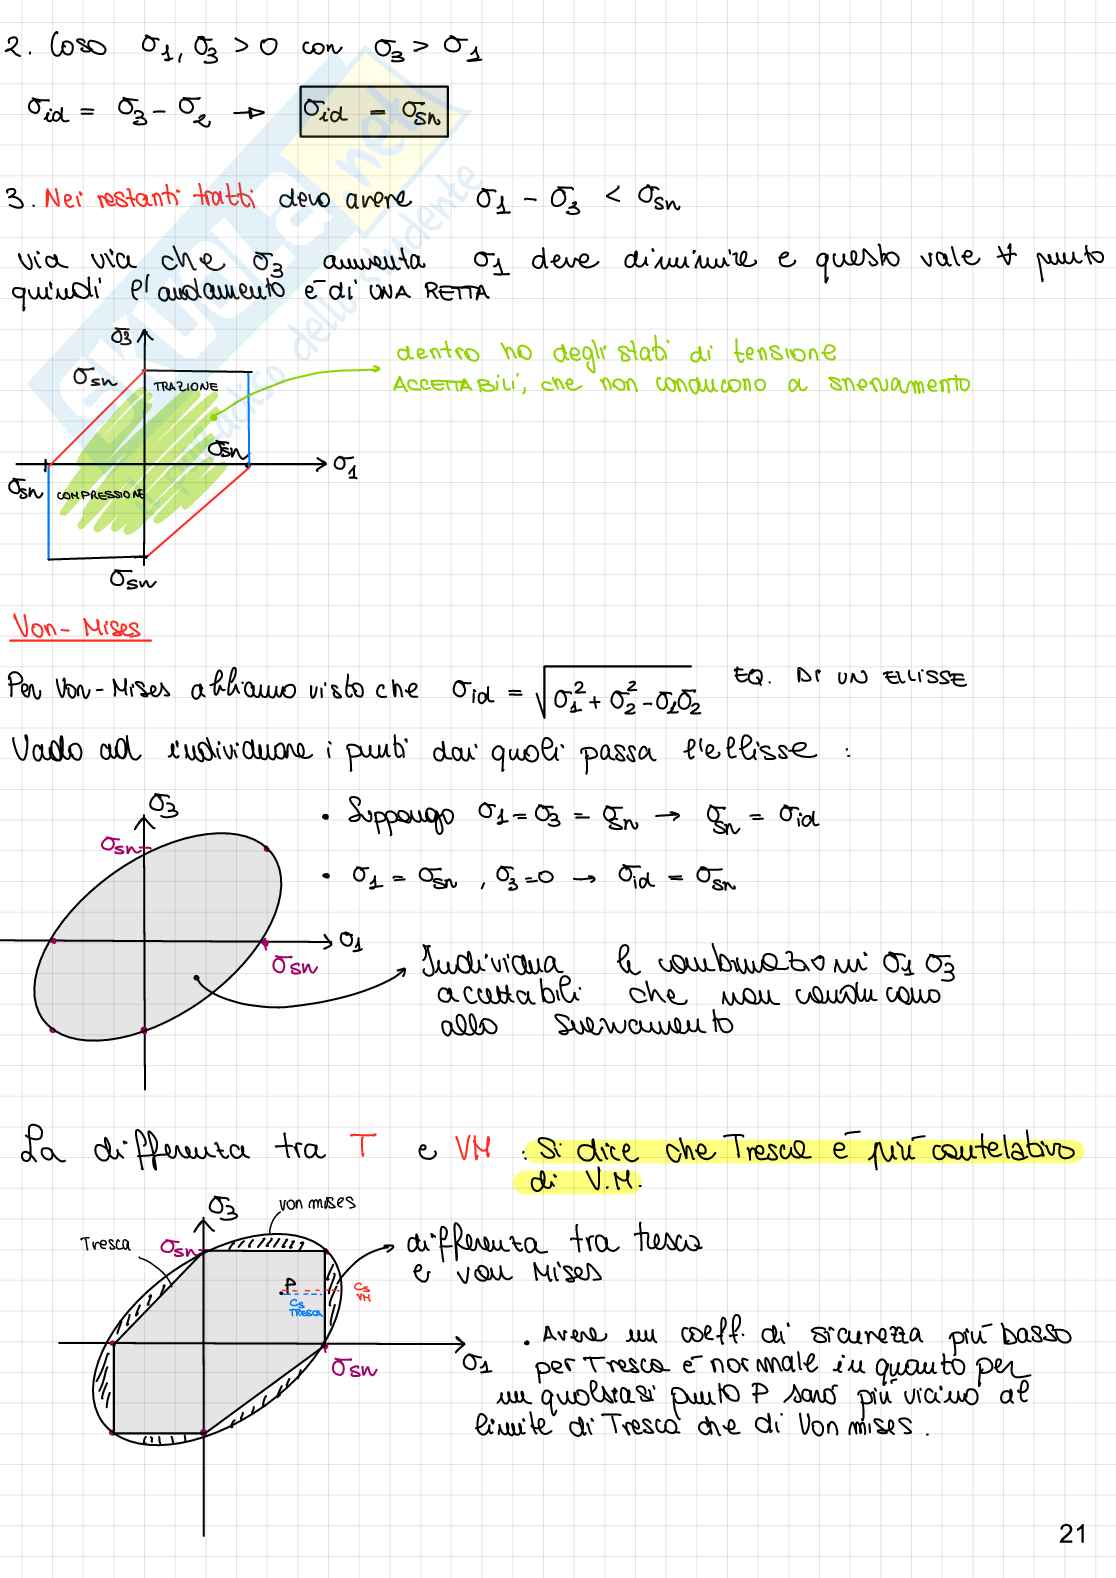 2. Caso σ1, σ3 > 0 con σ3 > σ1
σid = σ3 - σ2 → σid = σsn
3. Nei restanti tratti devo avere σ1 - σ3 < σsn
via via che σ3 aumenta σ1 deve diminuire e questo vale ∀ punto
quindi l'andamento è di UNA RETTA
σ3
dentro ho degli stati di tensione
ACCETTABILI, che non conducono a snervamento
σsn
TRAZIONE
σsn
σ1
σsn
COMPRESSIONE
σsn
Von-Mises
Per Von-Mises abbiamo visto che σid = √σ1² + σ2² - σ1σ2 EQ. DI UN ELLISSE
Vado ad individuare i punti dai quali passa l'ellisse :
σ3
σsn
• Suppongo σ1 = σ3 = σsn → σsn = σid
• σ1 = σsn , σ3 = 0 → σid = σsn
σ1
σsn
Individua le combinazioni σ1 σ3
accettabili che non conducono
allo snervamento
La differenza tra T e VM : Si dice che Tresca è più cautelativo
di V.M.
σ3
von mises
Tresca
σsn
differenza tra tresca
e von Mises
P
CS
VM
CS
TRESCA
σ1
σsn
• Avere un coeff. di sicurezza più basso
per Tresca è normale in quanto per
un qualsiasi punto P sarà più vicino al
limite di Tresca che di Von mises.
21